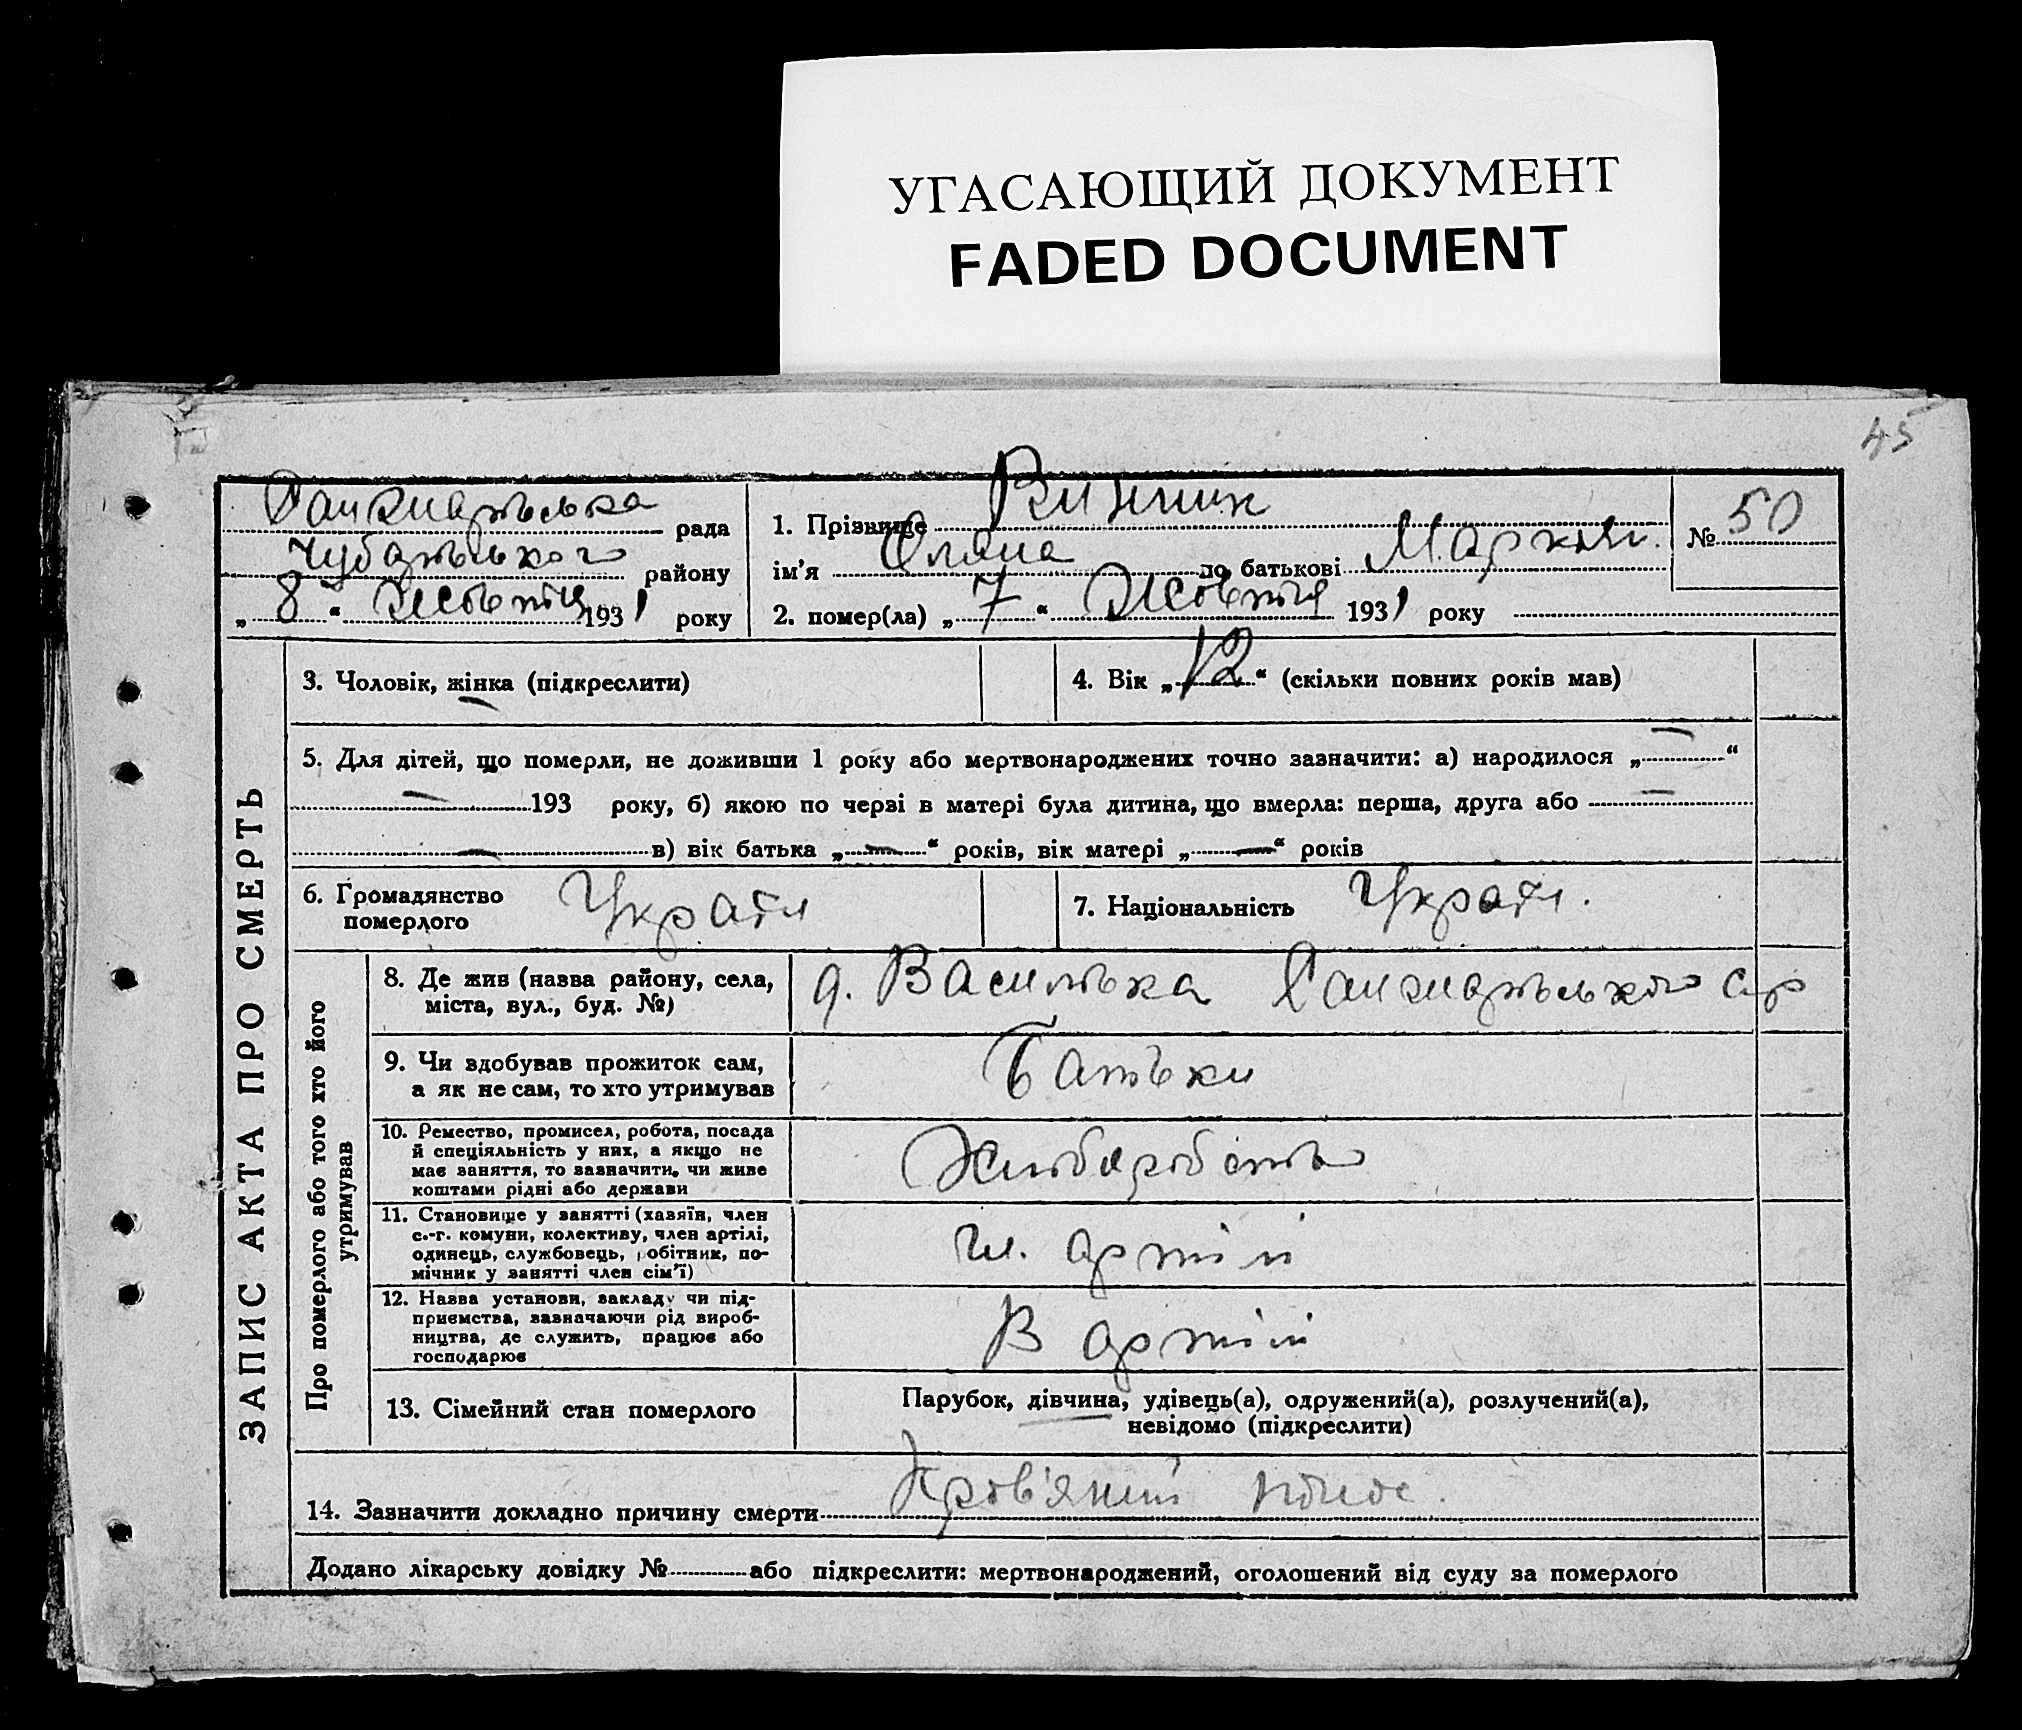 УГАСАЮЩИЙ ДОКУМЕНТ
FADED DOCUMENT
45
рада
Чубарського району
„ 8 “ Жовтня 1931 року
1. Прізвище Винник
ім'я Оляна по батькові Марков.
2. помер(ла) „ 7 “ Жовтня 1931 року
№ 50
ЗАПИС АКТА ПРО СМЕРТЬ
3. Чоловік, жінка (підкреслити)
4. Вік „ 12 “ (скільки повних років мав)
5. Для дітей, що померли, не доживши 1 року або мертвонароджених точно зазначити: а) народилося „ — “
— 193 року, б) якою по черзі в матері була дитина, що вмерла: перша, друга або —
— в) вік батька „ — “ років, вік матері „ — “ років
6. Громадянство
померлого
Україн
7. Національність Україн.
Про померлого або того хто його
утримував
8. Де жив (назва району, села,
міста, вул., буд. №)
9. Чи здобував прожиток сам,
а як не сам, то хто утримував
Батьки
10. Ремество, промисел, робота, посада
й спеціяльність у них, а якщо не
має заняття, то зазначити, чи живе
коштами рідні або держави
Хлібороб
11. Становище у занятті (хазяїн, член
с.-г. комуни, колективу, член артілі,
одинець, службовець, робітник, по-
мічник у занятті член сім'ї)
чл. артілі
12. Назва установи, закладу чи під-
приємства, зазначаючи рід вироб-
ництва, де служить, працює або
господарює
В артілі
13. Сімейний стан померлого
Парубок, дівчина, удівець(а), одружений(а), розлучений(а),
невідомо (підкреслити)
14. Зазначити докладно причину смерти Кров'яний понос.
Додано лікарську довідку № або підкреслити: мертвонароджений, оголошений від суду за померлого